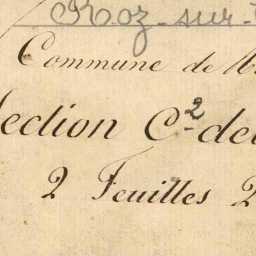 Roz-sur-
Commune de
ection C² de
2 Feuilles 2